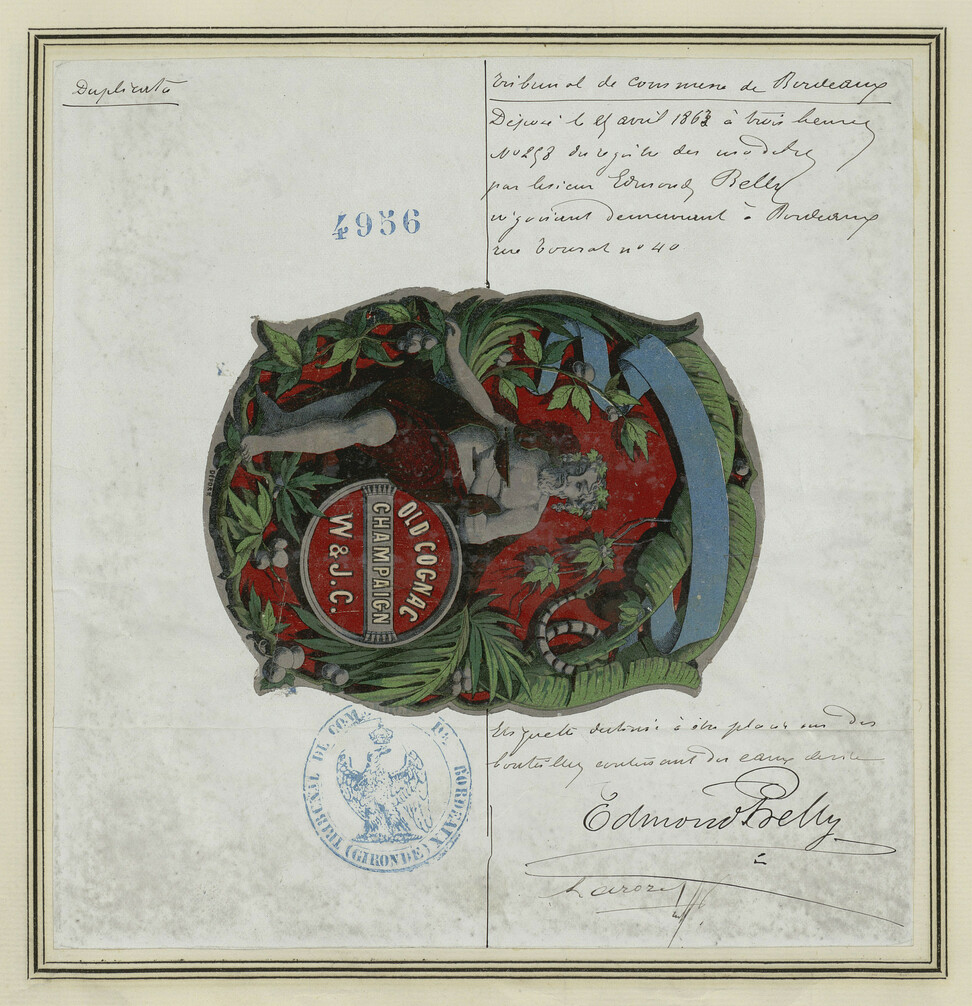 Duplicata
Tribunal de commerce de Bordeaux
Déposé le avril 1863 à trois heures
No 258 du registre des modèles
par le sieur Edmond Belly
négociant demeurant à Bordeaux
rue no 40
4956
OLD COGNAC
CHAMPAIGN
W & J.C.
TRIBUNAL DE COM. DE BORDEAUX
(GIRONDE)
Etiquette destinée à être placée sur des
bouteilles contenant des eaux de vie
Edmond Belly